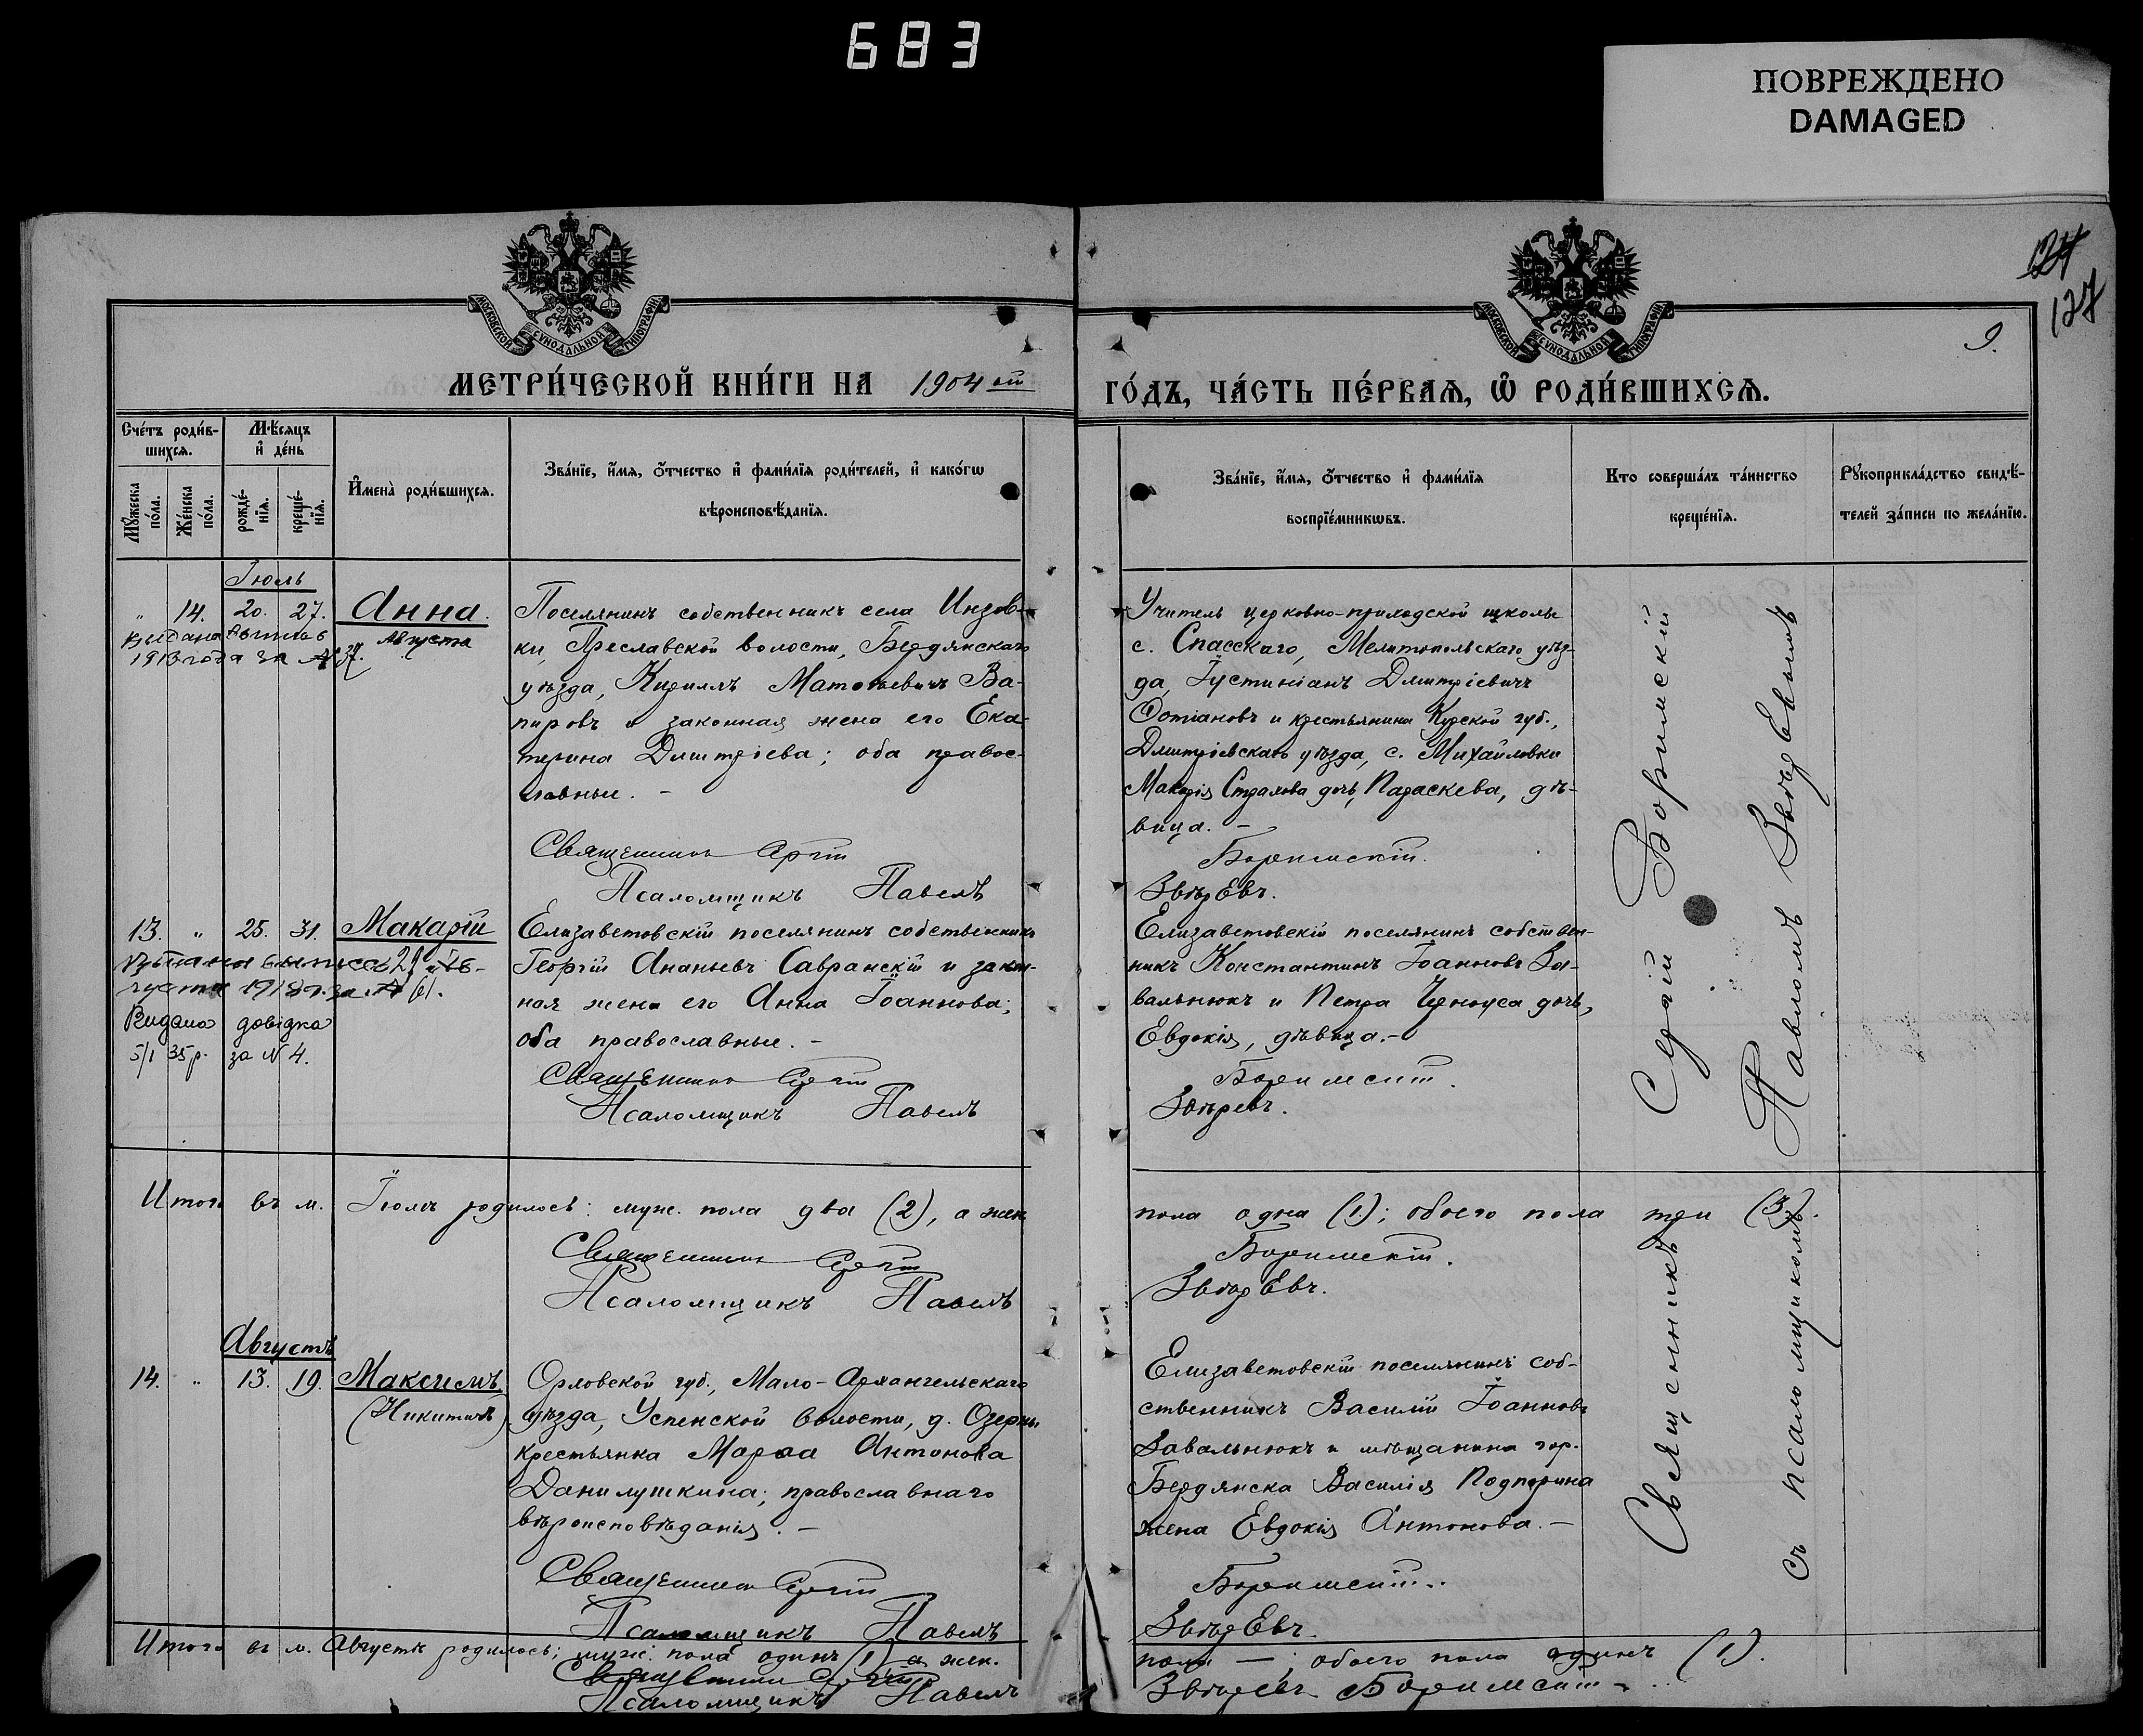 683
ПОВРЕЖДЕНО
DAMAGED
124
127
9.
МОСКОВСКОЙ СѴНОДАЛЬНОЙ ТИПОГРАФІИ
МОСКОВСКОЙ СѴНОДАЛЬНОЙ ТИПОГРАФІИ
МЕТРИ́ЧЕСКОЙ КНИ́ГИ НА 1904 ой
ГО́ДЪ, ЧА́СТЬ ПЕ́РВАЯ, Ѽ РОДИ́ВШИХСЯ.
Сче́тъ роди́в-
шихся.
Мꙋ́жеска по́ла.
Же́нска по́ла.
Мѣ́сяцъ
и҆ де́нь
рожде́-
нїя.
креще́-
нїя.
И҆мена̀ роди́вшихся.
Зва́нїе, и҆́мя, ѻ҆́тчество и҆ фами́лїя роди́телей, и҆ како́гѡ
вѣроисповѣ́данїя.
Зва́нїе, и҆́мя, ѻ҆́тчество и҆ фами́лїя
воспрїе́мникѡвъ.
Кто соверша́лъ та́инство
креще́нїя.
Рꙋкоприкла́дство свидѣ́-
телей за́писи по жела́нїю.
Іюль
" 14. 20. 27. Анна
Августа
1913 года за № 37.
Поселянинъ собственникъ села Инзов-
ки, Преславской волости, Бердянскаго
уѣзда, Кириллъ Матвѣевичъ Ва-
пировъ и законная жена его Ека-
терина Дмитріева; оба правос-
лавные. –
Священникъ Сергій
Псаломщикъ Павелъ
Учитель церковно-приходской школы
с. Спасскаго, Мелитопольскаго уѣз-
да, Іустиніанъ Дмитріевичъ
Фотіановъ и крестьянина Курской губ.,
Дмитріевскаго уѣзда, с. Михайловки
Макарія Страхова дочь, Параскева, дѣ-
вица. –
Боримскій.
Звѣревъ.
13. " 25. 31. Макарій
густа 1918 г. за № 61.
Видано довідка
5/I 35 р. за N 4.
Елизаветовскій поселянинъ собственникъ
Георгій Ананьевъ Савранскій и закон-
ная жена его Анна Іоаннова;
оба православные. –
Священникъ Сергій
Псаломщикъ Павелъ
Елизаветовскій поселянинъ собствен-
никъ Константинъ Іоанновъ За-
вальнюкъ и Петра Черноуса дочь,
Евдокія, дѣвица. –
Боримскій.
Звѣревъ.
Итого въ м. Іюлѣ родилось: муж. пола два (2), а жен.
пола одна (1); обоего пола три (3).
Священникъ Сергій
Псаломщикъ Павелъ
Боримскій.
Звѣревъ.
Августъ
14. " 13. 19. Максимъ.
(Никитинъ)
Орловской губ., Мало-Архангельскаго
уѣзда, Успенской волости, д. Озерки
крестьянка Марѳа Антонова
Данилушкина; православнаго
вѣроисповѣданія. –
Священникъ Сергій
Псаломщикъ Павелъ
Елизаветовскій поселянинъ соб-
ственникъ Василій Іоанновъ
Завальнюкъ и мѣщанина гор.
Бердянска Василія Подпорина
жена Евдокія Антонова. –
Боримскій.
Звѣревъ.
Священникъ Сергій Боримскій
съ псаломщикомъ Павломъ Звѣревымъ
Итого въ м. Августѣ родилось; муж. пола одинъ (1) а жен.
пола — ; обоего пола одинъ (1).
Священникъ Сергій
Псаломщикъ Павелъ
Звѣревъ Боримскій